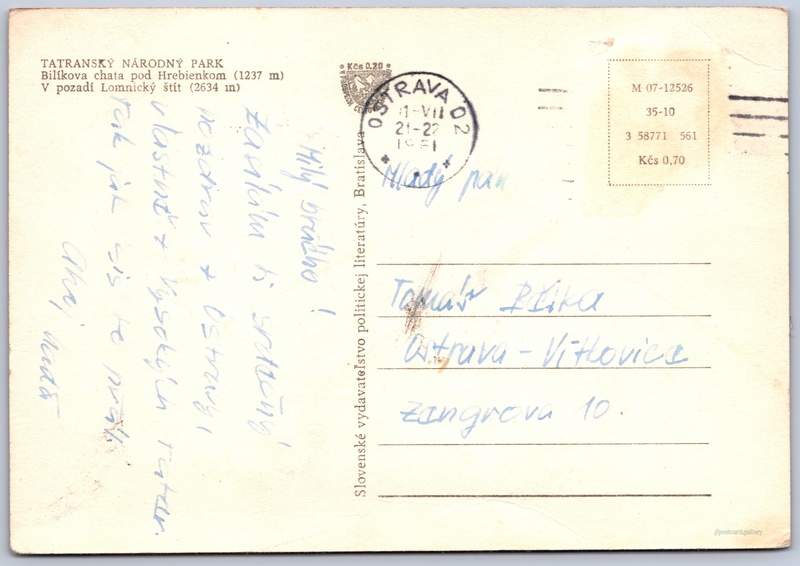 TATRANSKÝ NÁRODNÝ PARK
Bilíkova chata pod Hrebienkom (1237 m)
V pozadí Lomnický štít (2634 m)
Milý brácho!
Zasílám ti srdečný
pozdrav z Ostravy,
vlastně z Vysokých Tater.
Tak jak sis to přál.
Ahoj,
Slovenské vydavateľstvo politickej literatúry, Bratislava
Kčs 0.20
OSTRAVA 02
21-22
M 07-12526
35-10
3 58771 561
Kčs 0,70
Mladý pan
Tomáš
Ostrava - Vítkovice
Zengrova 10.